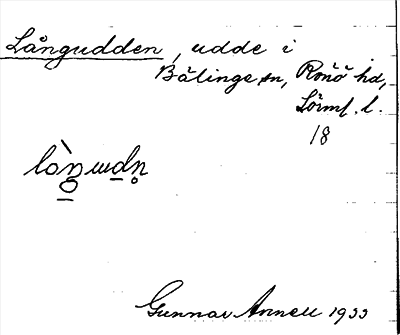 Långudden, udde i
Bälinge sn, Rönö hd,
Sörml. l.
18
Gunnar Annell 1933